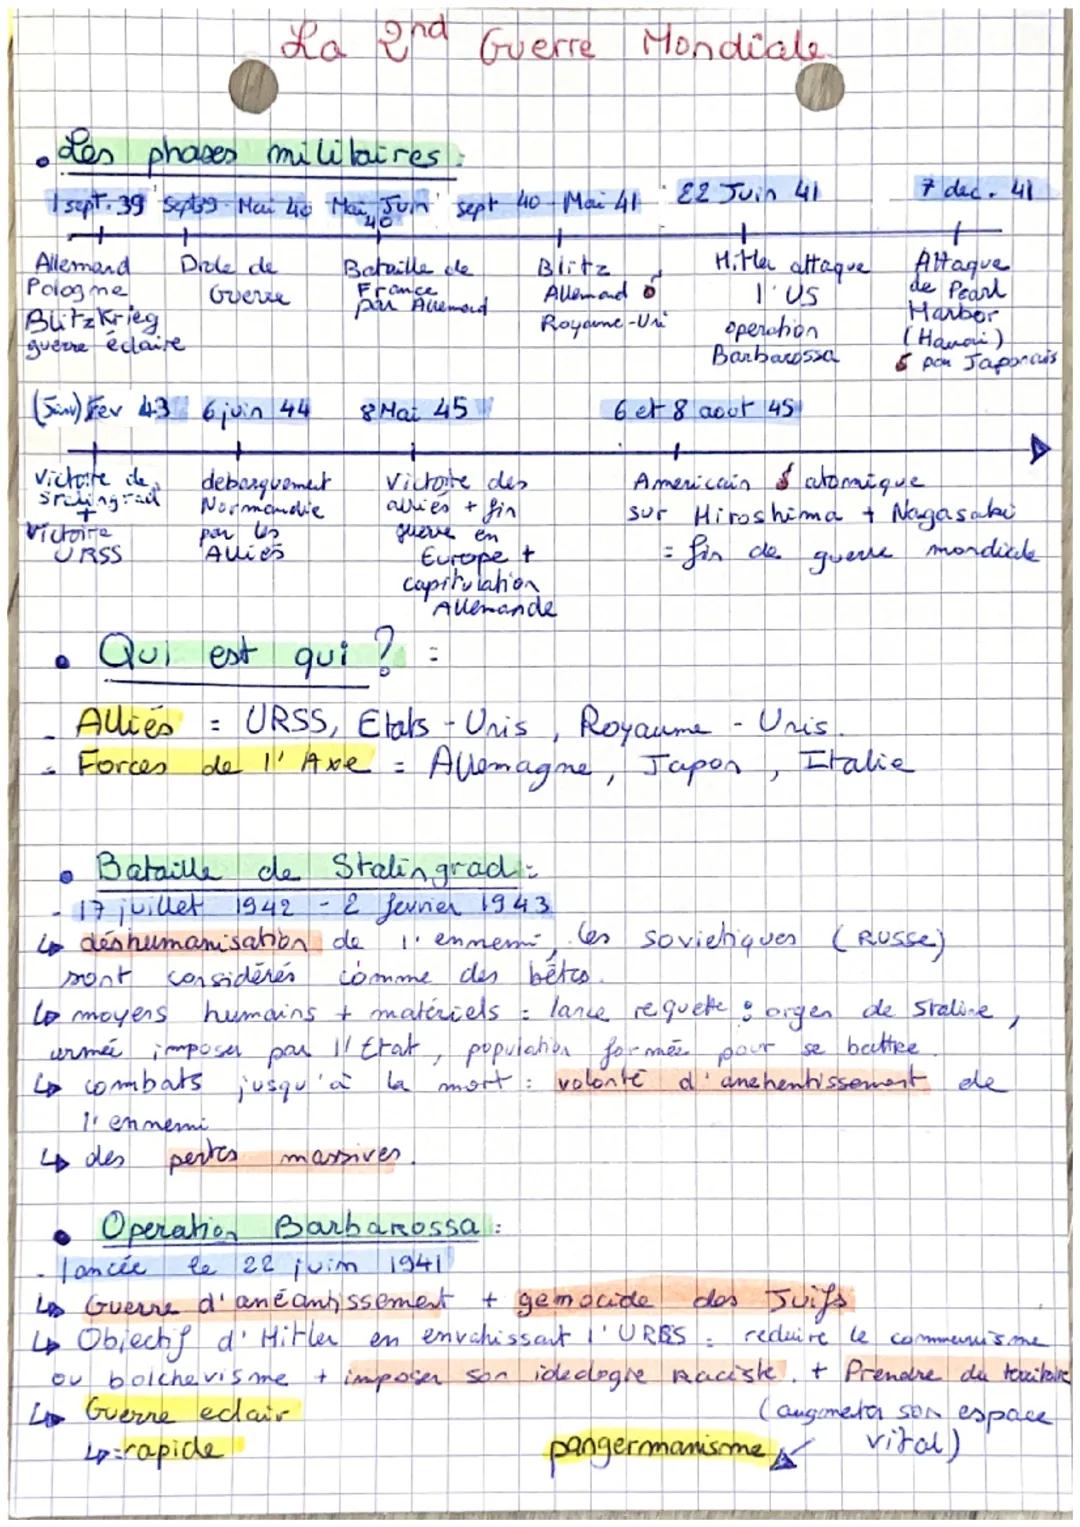 La 2nd Guerre Mondiale
• Les phases militaires :
1 sept. 39 Sept 39 - Mai 40 Mai, Juin 40 sept 40 - Mai 41 22 Juin 41 7 dec. 41
Allemand
Pologne
BlitzKrieg
guerre éclaire
Drole de
Guerre
Bataille de
France
par Allemand
Blitz
Allemand
Royaume-Uni
Hitler attaque
l'US
operation
Barbarossa
Attaque
de Pearl
Harbor
(Hawai)
par Japonais
(Janv) Fev 43 6 juin 44 8 Mai 45 6 et 8 aout 45
Victoire de
Stalingrad
+
Victoire
URSS
debarquement
Normandie
par les
Alliés
Victoire des
alliés + fin
guerre en
Europe +
capitulation
Allemande
Americain atomique
sur Hiroshima + Nagasaki
= fin de guerre mondiale
• Qui est qui ? :
- Alliés = URSS, Etats-Unis, Royaume-Unis.
- Forces de l'Axe = Allemagne, Japon, Italie
• Bataille de Stalingrad :
- 17 juillet 1942 - 2 fevrier 1943
↳ déshumanisation de l'ennemi, les sovietiques (RUSSE)
sont considérés comme des bêtes.
↳ moyens humains + matériels : lance requete : de Staline,
armée imposer par l'Etat, population formée pour se battre.
↳ combats jusqu'à la mort : volonté d'anehentissement de
l'ennemi
↳ des pertes massives.
• Operation Barbarossa :
- lancée le 22 juin 1941
↳ Guerre d'anéantissement + genocide des Juifs
↳ Objectif d'Hitler en envahissant l'URSS : reduire le communisme
ou bolchevisme + imposer son ideologie raciste. + Prendre du territoire
(augmeter son espace
vital)
↳ Guerre eclair
↳ = rapide
pangermanisme